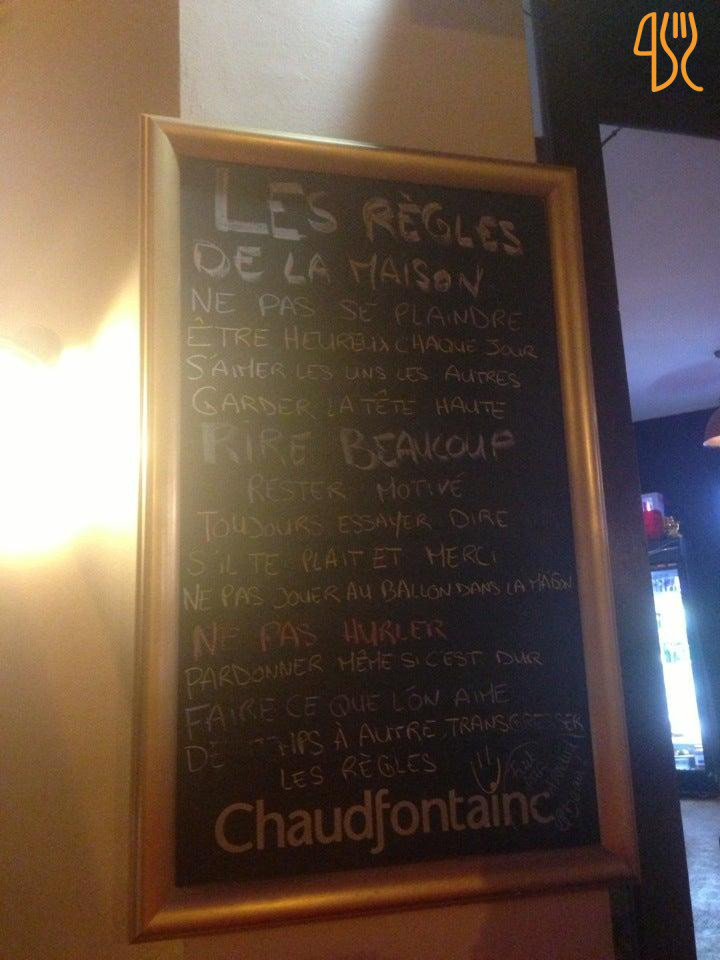 LES RÈGLES
DE LA MAISON
NE PAS SE PLAINDRE
ÊTRE HEUREUX CHAQUE JOUR
S'AIMER LES UNS LES AUTRES
GARDER LA TÊTE HAUTE
RIRE BEAUCOUP
RESTER MOTIVÉ
TOUJOURS ESSAYER DIRE
S'IL TE PLAIT ET MERCI
NE PAS JOUER AU BALLON DANS LA MAISON
NE PAS HURLER
PARDONNER MÊME SI C'EST DUR
FAIRE CE QUE L'ON AIME
DE À AUTRE, TRANSGRESSER
LES RÈGLES
Chaudfontaine